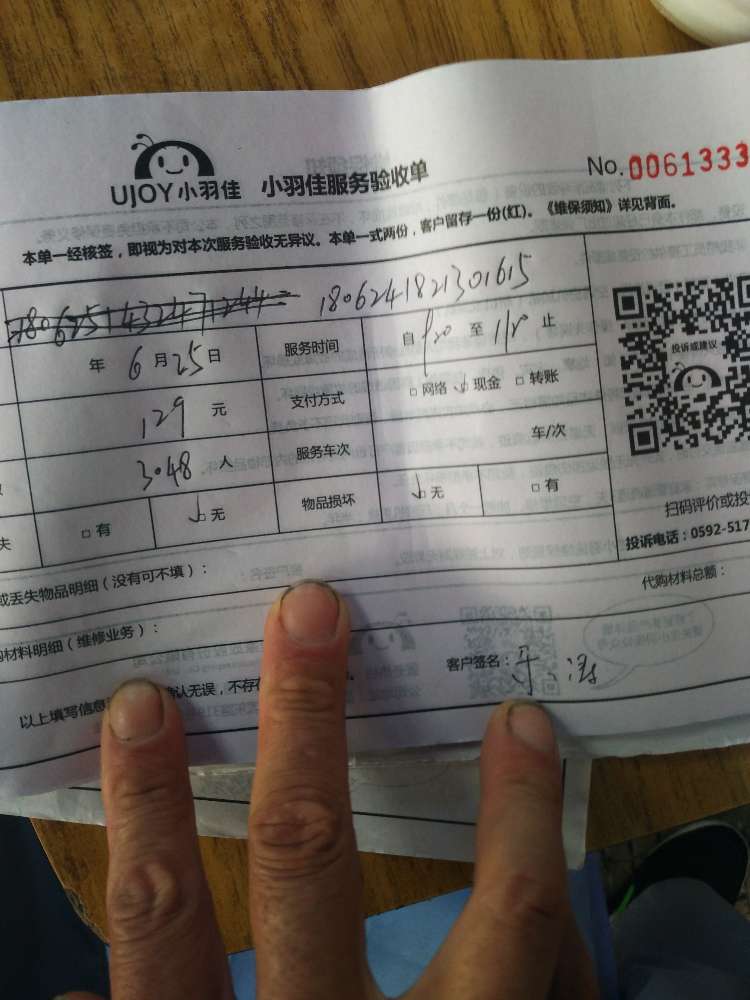 UJOY小羽佳 小羽佳服务验收单 No.0061333
本单一经核签，即视为对本次服务验收无异议。本单一式两份，客户留存一份(红)。《维保须知》详见背面。
1806241821301615
年 6 月 25 日 服务时间 自 至 止
129 元 支付方式 □ 网络 □ 现金 □ 转账
3048 人 服务车次 车/次
失 □ 有 □ 无 物品损坏 □ 无 □ 有
投诉或建议
扫码评价或投
投诉电话：0592-517
或丢失物品明细（没有可不填）：
代购材料总额：
购材料明细（维修业务）：
客户签名：
以上填写信息 确认无误，不存